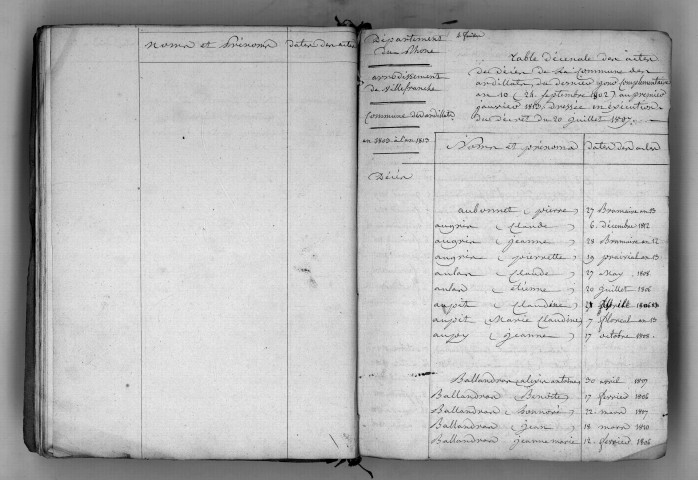 Noms et Prénoms
dates des actes
Département
du Rhone
arrondissement
de Villefranche
Commune des ardillats
an 1803 à l'an 1813
Décès
Table décenale des actes
de décès de la Commune des
ardillats, du dernier jour Complementaire
an 10 (21 septembre 1802) au premier
janvier 1813, dressée en exécution
du décret du 20 juillet 1807.
Noms et prénoms dates des actes
aubonnet (pierre) 27 Brumaire an 13
augrin (Claude) 6 décembre 1812
augrin (jeanne) 28 Brumaire an 12
augrin (pierrette) 19 prairial an 13
aulas (Claude) 27 May 1808
aulas (etienne) 20 juillet 1806
aupit (Claudine)
aupit (Marie Claudine) 7 floreal an 13
aupy (jeanne) 17 octobre 1808
Ballandras antoine 30 avril 1807
Ballandras (Benoite) 17 fevrier 1806
Ballandras (honnoré) 22 mars 1807
Ballandras (jean) 18 mars 1810
Ballandras jeanne marie 12 fevrier 1806